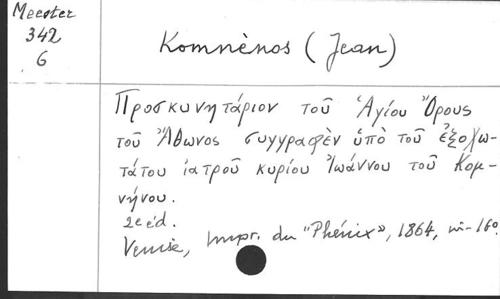 Meester
342
6
Komnènos (Jean)
Προσκυνητάριον τοῦ Ἁγίου Ὄρους
τοῦ Ἄθωνος συγγραφὲν ὑπὸ τοῦ ἐξοχω-
τάτου ἰατροῦ κυρίου Ἰωάννου τοῦ Κομ-
νήνου.
2e éd.
Venise, Impr. du "Phénix", 1864, in-16o.